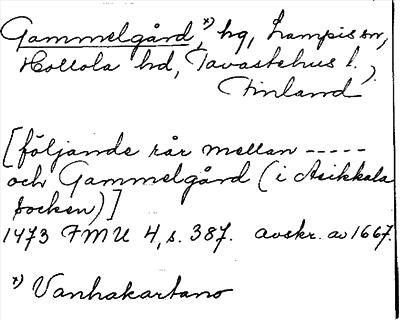 Gammelgård,*) hg, Lampis sn,
Hollola hd, Tavastehus l.
Finland).
[följande rår mellan -----
och Gammelgård (i Asikkala
socken)]
1473 FMU 4, s. 387. avskr. av 1667.
*) Vanhakartano